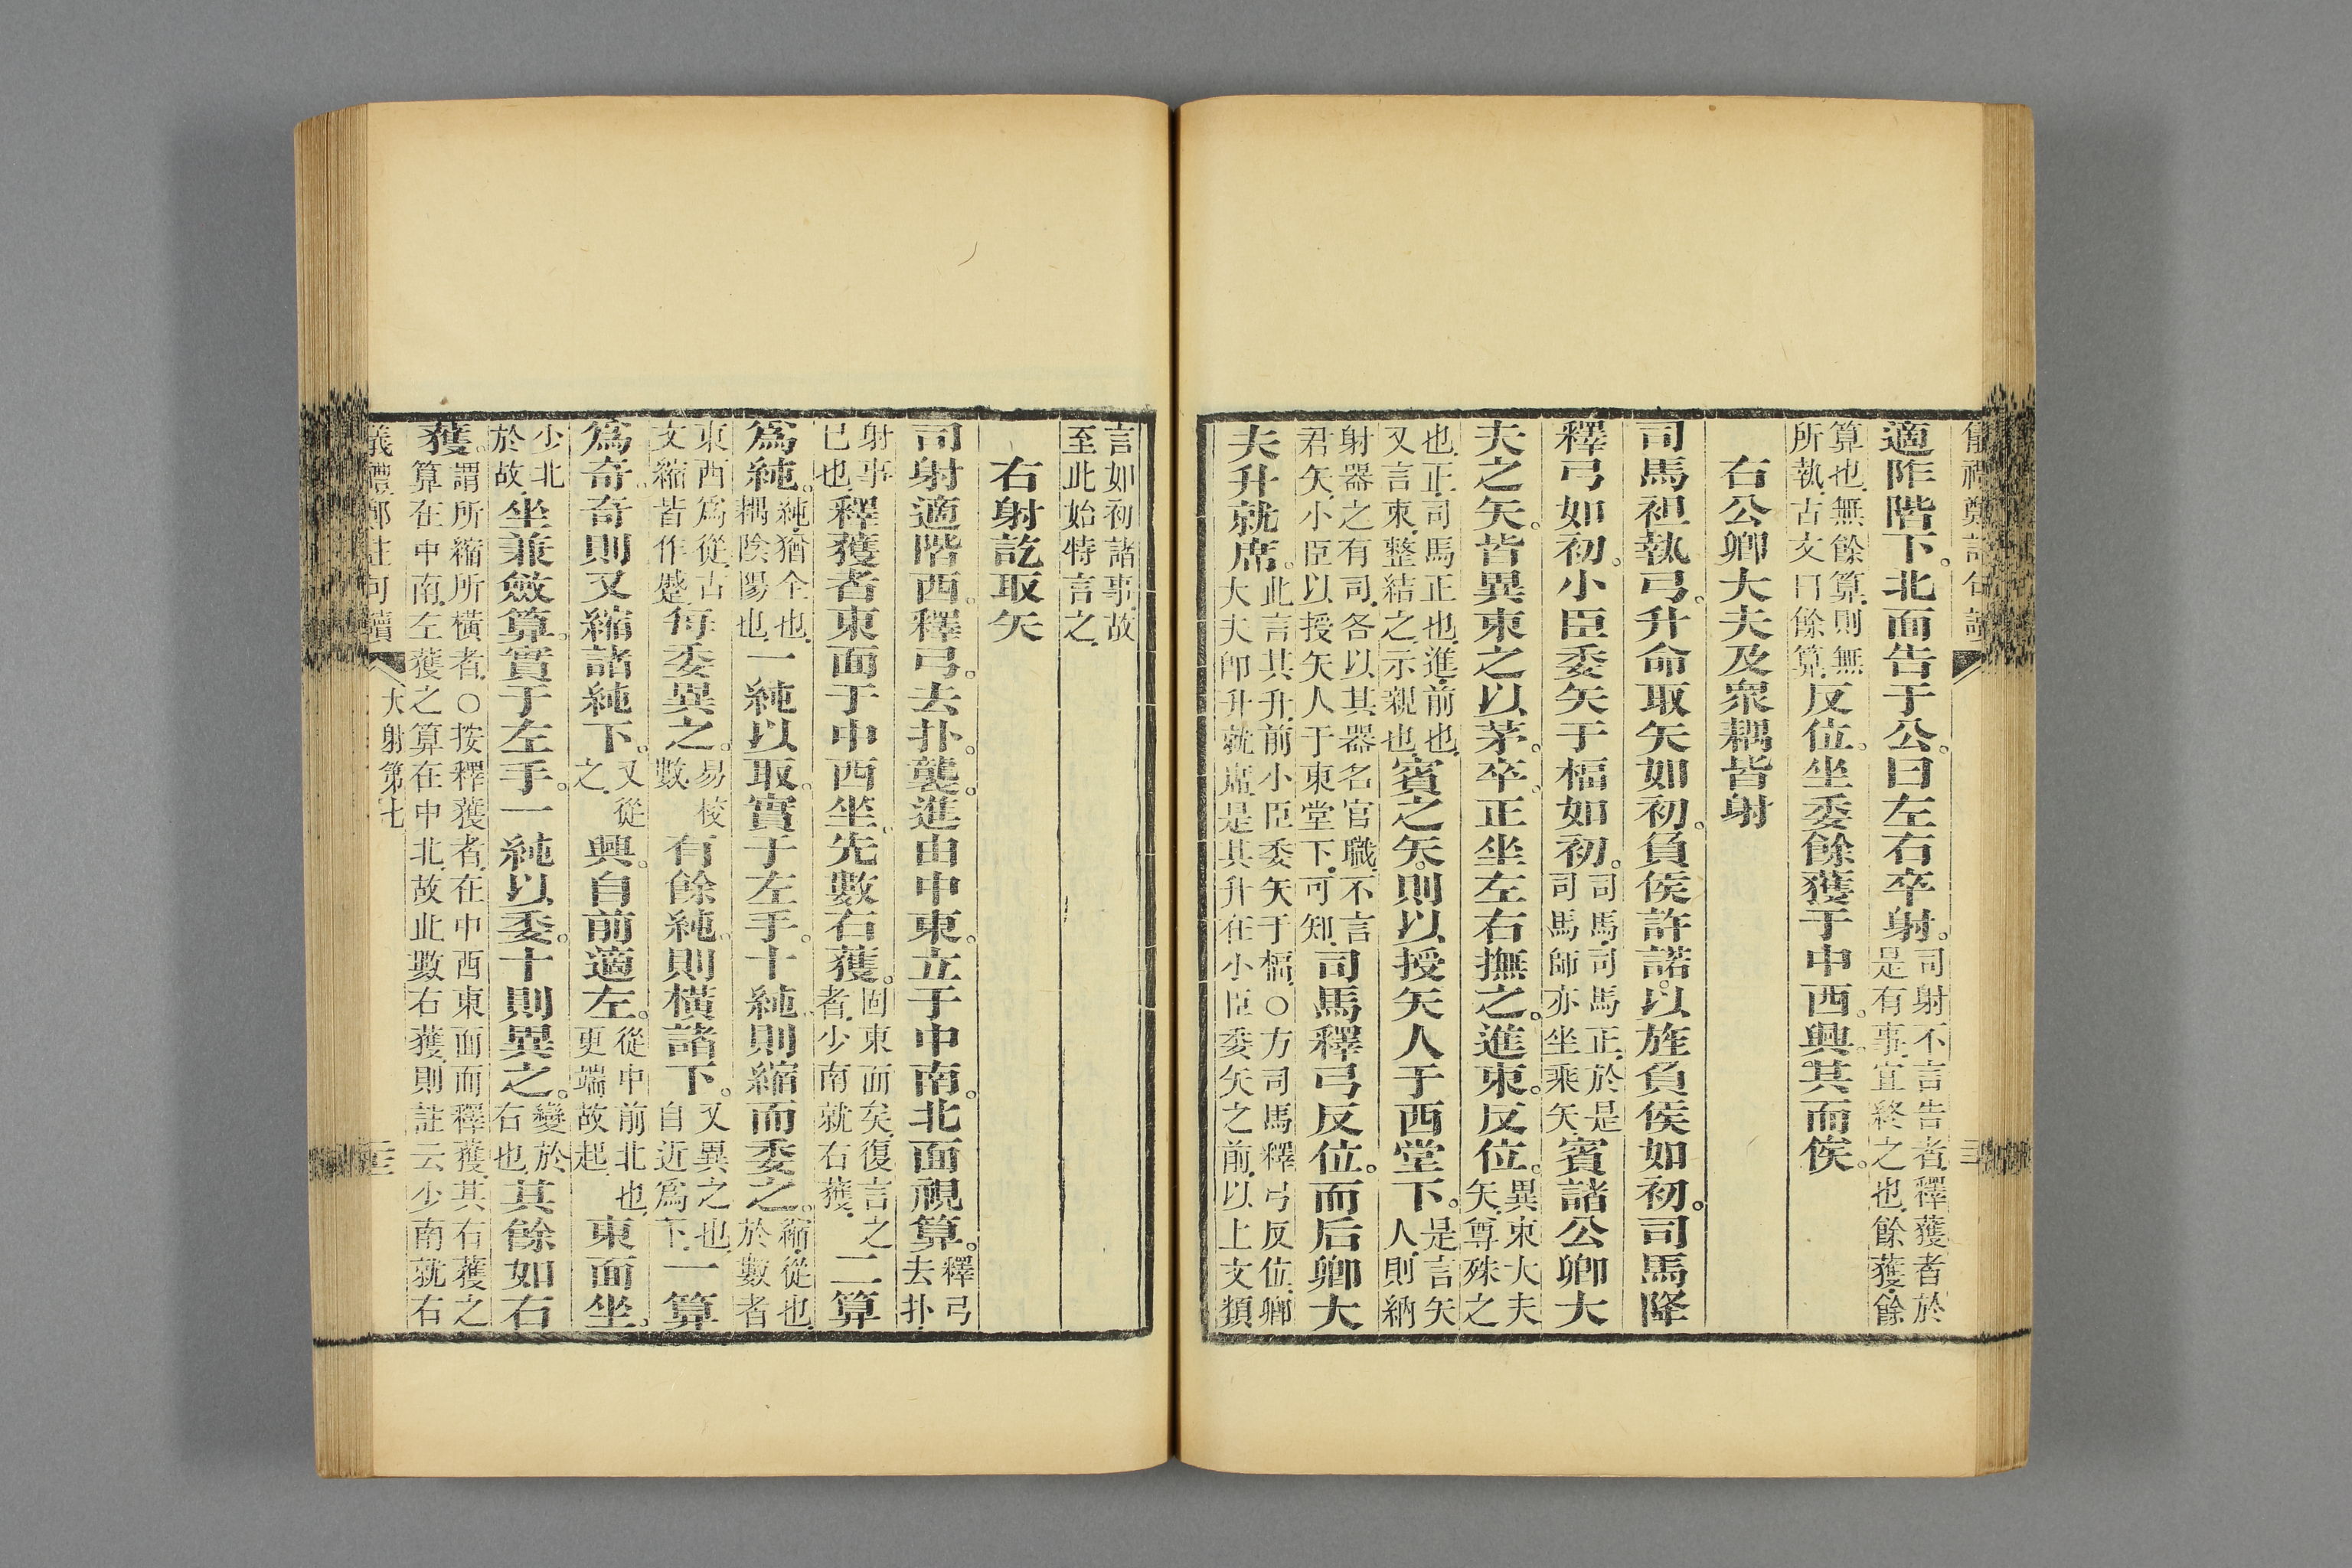 適阼階下。北面告于公。曰左右卒射。司射不言告者、釋獲者於是有事、宜終之也、餘獲、餘
算也、無餘算、則無所執、古文曰餘算、反位。坐委餘獲于中西。興。共而俟。
右公卿大夫及衆耦皆射
司馬袒執弓。升命取矢如初。負侯許諾。以旌負侯如初。司馬降
釋弓如初。小臣委矢于楅如初。司馬、司馬正、於是司馬師亦坐乘矢、賓諸公卿大
夫之矢。皆異束之以茅。卒。正坐左右撫之。進束。反位。異束大夫矢、尊殊之
也、正、司馬正也、進、前也、又言束、整結之、示親也、賓之矢。則以授矢人于西堂下。是言矢人、則納
射器之有司、各以其器名官職、不言君矢、小臣以授矢人于東堂下、可知、司馬釋弓反位。而后卿大
夫升就席。此言其升、前小臣委矢于楅、〇方司馬釋弓反位、卿大夫卽升就席、是其升在小臣委矢之前、以上文類
言如初諸事、故至此始特言之、
右射訖取矢
司射適階西。釋弓。去扑。襲。進由中東。立于中南。北面視算。釋弓去扑、
射事已也、釋獲者東面于中西坐。先數右獲。固東面矣、復言之者、少南就右獲、二算
爲純。純猶全也、耦陰陽也、一純以取。實于左手。十純則縮而委之。縮、從也、於數者
東西爲從、古文縮皆作蹙、每委異之。易校數、有餘純。則橫諸下。又異之也、自近爲下、一算
爲奇。奇則又縮諸純下。又從之、興。自前適左。從中前北也、更端故起、東面坐。
少北於故、坐兼斂算。實于左手。一純以委。十則異之。變於右也、其餘如右
獲。謂所縮所橫者、〇按釋獲者、在中西東面而釋獲、其右獲之算在中南、左獲之算在中北、故此數右獲、則註云少南就右
大射第七